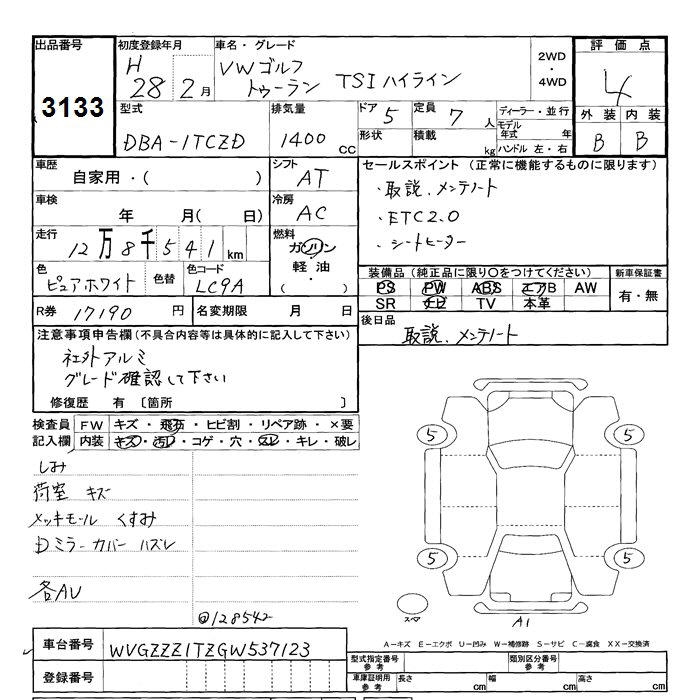 出品番号 初度登録年月 車名・グレード 評価点
3133 H 28 2月 VWゴルフ トゥーラン TSIハイライン 2WD・4WD 4
型式 排気量 ドア 5 定員 7人 ディーラー・並行 外装 内装
DBA-1TCZD 1400 CC 形状 積載 kg モデル年式 年 ハンドル 左・右 B B
車歴 シフト セールスポイント (正常に機能するものに限ります)
自家用・( ) AT ・取説、メンテノート
車検 冷房 ・ETC2.0
年 月( 日) AC ・シートヒーター
走行 燃料
12万8千541km ガソリン・軽油・( )
色 色替 色コード 装備品(純正品に限り〇をつけてください) 新車保証書
ピュアホワイト LC9A PS PW ABS エアB AW 有・無
SR ナビ TV 本革
R券 17190円 名変期限 月 日 後日品
取説、メンテノート
注意事項申告欄(不具合内容等は具体的に記入して下さい)
社外アルミ
グレード確認して下さい
修復歴 有〔箇所 〕
検査員 FW キズ・飛石・ヒビ割・リペア跡・×要
記入欄 内装 キズ・汚レ・コゲ・穴・スレ・キレ・破レ
しみ
荷室 キズ
メッキモール くすみ
Dミラーカバー ハズレ
各AU
@128542
5 5
5 5
スペア A1
車台番号 WVGZZZ1TZGW537123
A-キズ E-エクボ U-凹み W-補修跡 S-サビ C-腐食 XX-交換済
型式指定番号 参考 類別区分番号 参考
登録番号 車庫証明用 参考 長さ cm 幅 cm 高さ cm